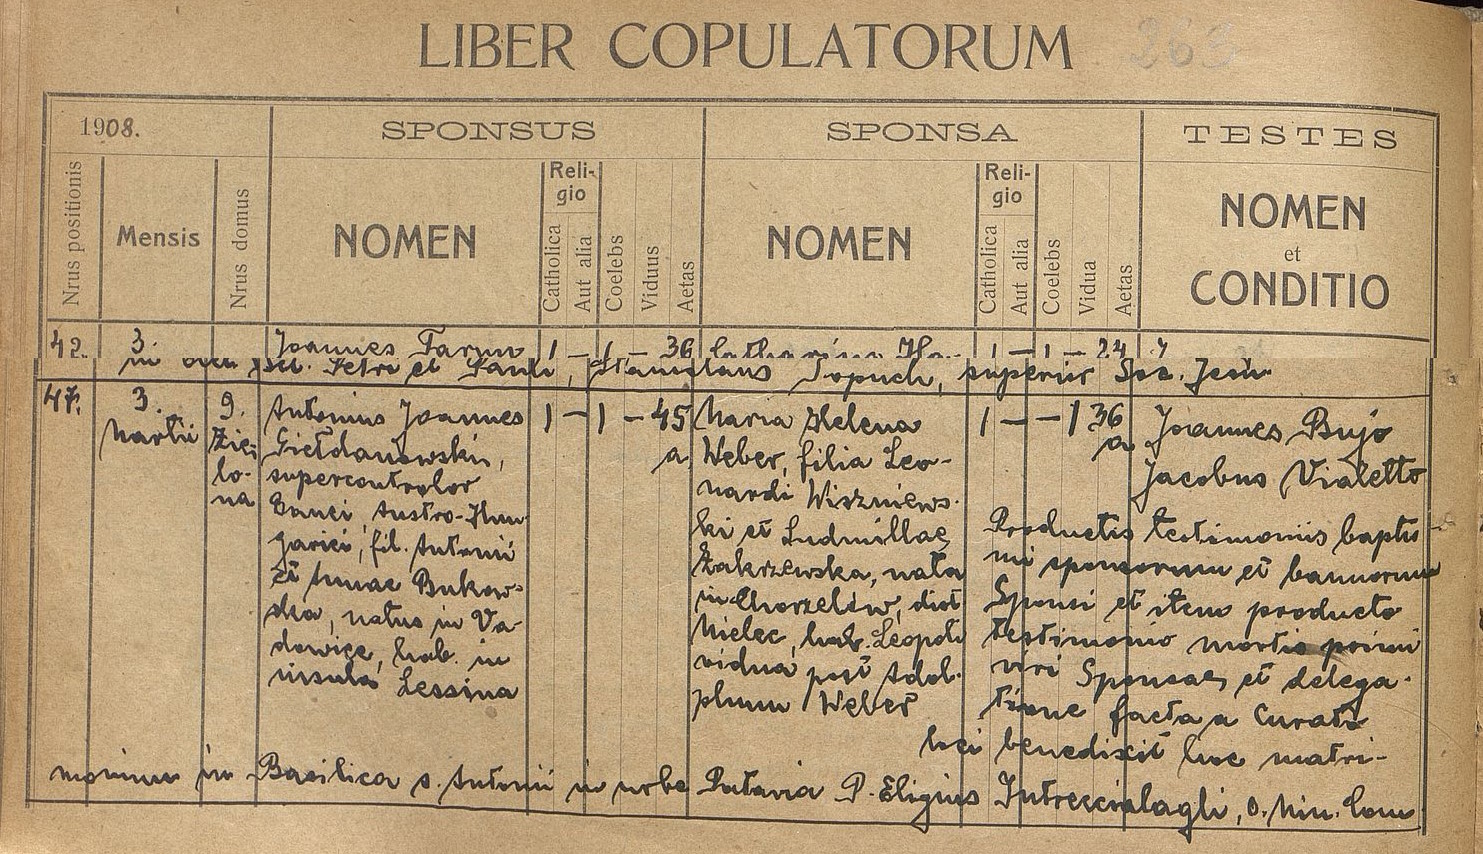 LIBER COPULATORUM 263
1908. SPONSUS SPONSA TESTES
Nrus positionis Mensis Nrus domus NOMEN Religio Catholica Aut alia Coelebs Viduus Aetas NOMEN Religio Catholica Aut alia Coelebs Vidua Aetas NOMEN et CONDITIO
42. 3. Joannes 1 — 1 — 36 1 — 1 — 24
in Petri et Pauli, Stanislaus Sopuch, superior Soc. Jesu
47. 3. 9. Antonius Joannes 1 — 1 — 45 Maria Helena 1 — — 1 36 Joannes Bujo
Martii Zie- Giełdanowski, a Weber, filia Leo- a Jacobus Vialetto
lo- supercontrolor nardi Wiszniews-
na Banci Austro-Hun ki et Ludmillae Productis testimoniis baptis
garici, fil. Antonii Zakrzewska, nata mi sponsorum et bannorum
et Annae Bukow- in Chorzelów, dist Sponsi et item producto
ska, natus in Va- Mielec, hab. Leopoli testimonio mortis primi
dowice, hab. in vidua post Adol- viri Sponsae, et delega-
insula Lessina phum Weber tione facta a Curato
loci benedixit hoc matri-
monium in Basilica s. Antonii in urbe Patavia P. Eligius O. Min. Conv